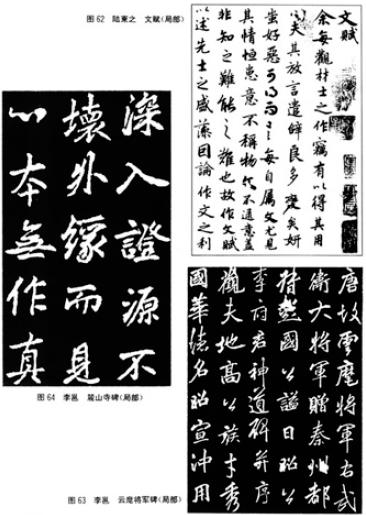 图62 陆柬之 文赋(局部)
文賦
余每觀材士之作竊有以得其用
心夫其放言遣辭良多變矣妍
蚩好惡可得而言每自属文尤見
其情恒患意不稱物文不逮意蓋
非知之難能之難也故作文賦
以述先士之盛藻因論作文之利
深入證源不
壞外緣而見
心本無作真
图64 李邕 麓山寺碑(局部)
唐故雲麾將軍右武
衛大將軍贈秦州都
督彭國公謚曰昭公
李府君神道碑并序
觀夫地高公族才秀
國華德名昭宣沖用
图63 李邕 云麾将军碑(局部)